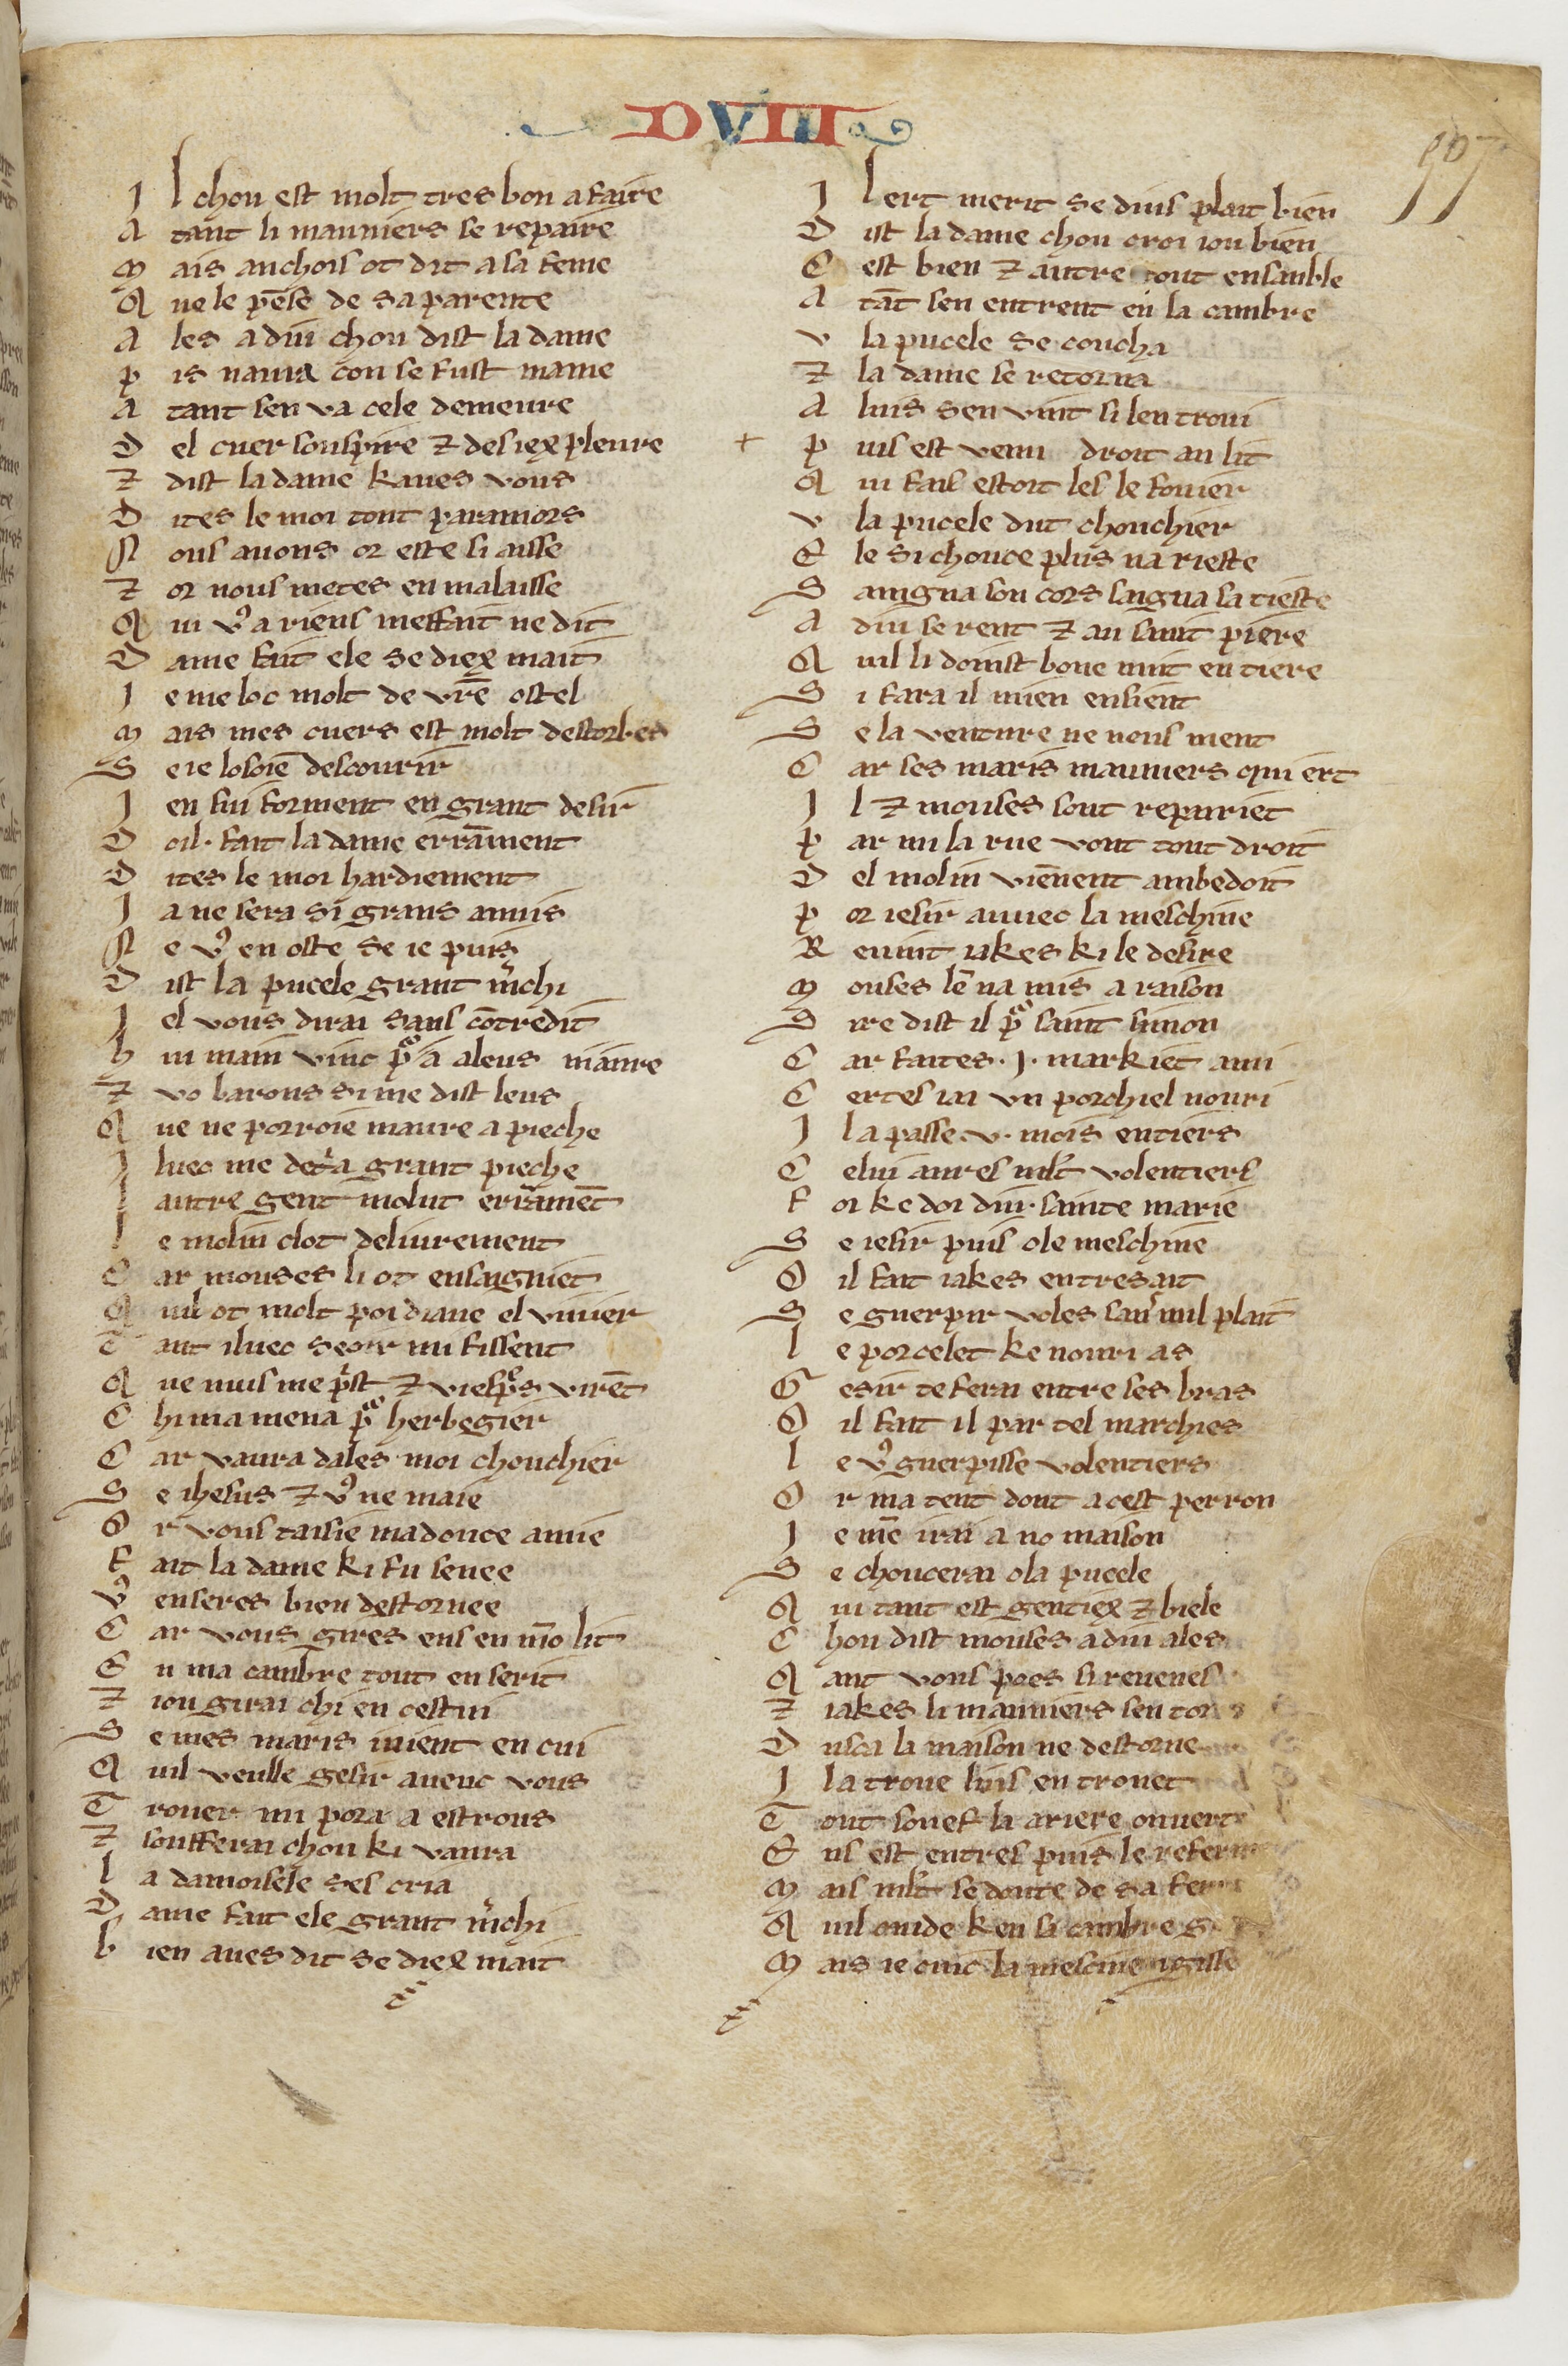 DVIII
507
Il chou est molt tres bon a faire
A tant li mauniers se repaire
Mais anchois ot dit a sa feme
Que le pēse de sa parente
Ales a diu chou dist la dame
Pis naura con se fust mame
A tant sen va cele demeure
Del cuer souspire ⁊ des iex pleure
⁊ dist la dame kaues vous
Dites le moi tout par amors
Nous auons or este si aisse
⁊ or nous metes en malaisse
Qui vꝰ a riens meffait ne dit
Dame fait ele se diex mait
Ie me loc molt de vr̄e ostel
Mais mes cuers est molt destorbes
Se ie losoie descourir
Ien fui forment en grant desir
Oil · fait la dame errāment
Dites le moi hardiement
Ia ne sera si grans anuis
Ne vꝰ en oste se ie puis
Dist la pucele grant mͥchi
Iel vous dirai sans cōtredit
Hui main vinc por a aleus maure
⁊ vo barons si me dist leus
Que ne porroie maure a pieche
Iluec me detͥa grant pieche
Lautre gent molut errāmēt
Le molin clot deliurement
Car mouses li ot ensaigniet
Quil ot molt poi diaue el viuier
Tant iluec seoir mi fissent
Que nuis me pͥst ⁊ viespꝰs virēt
Chi ma mena por herbegier
Car vaura dales moi chouchier
Se ihesus ⁊ vꝰ ne maie
Or vous taisie ma douce amie
Fait la dame ki fu senee
Vꝰ en seres bien destornee
Car vous gires ens en mō lit
En ma cambre tout en serit
⁊ iou girai chi en cestui
Se mes maris iuient en cui
Quil veulle gesir auenc vous
Trouer mi pora a estrous
⁊ soufferai chou ki vaura
La damoisele ses cria
Dame fait ele grant mͥchi
Bien aues dit se diex mait
Il ert merit se dius plait bien
Dist la dame chou croi iou bien
Cest bien ⁊ autre tout ensanble
A tāt sen entrent en la cambre
V la pucele se coucha
⁊ la dame se retorna
A luis sen vint si len troui
+ Puis est venu droit au lit
Qui fais estoit les le fouier
V la pucele dut chouchier
Ele si chouce plus na rieste
Saigna son cors saigna sa tieste
A diu se rent ⁊ au saint piere
Quil li doinst boue nuit entiere
Si fara il mien ensient
Se la venture ne nous ment
Car ses maris mauniers qui ert
Il ⁊ mouses sont repairiet
Par mi la rue vont tout droit
Del molin viēnent ambedoit
Por iesir auuec la meschine
Reuint iakes ki le desire
Mouses lē na mis a raison
Sire dist il por saint simon
Car faites · I · markiet a mi
Certes iai vn porchiel nouri
Il a passe · v · mois entiers
Celui aures ml't volentiers
Foi ke doi diu · sainte marie
Se iesir puis o le meschine
Oil fait iakes entresait
Se guerpir voles sans nul plait
Le porcelet ke nouri as
Gesir te ferai entre ses bras
Oil fait il par tel marchies
Le vꝰ guerpisse volentiers
Or ma tent dont a cest perron
Ie mē irai a no maison
Se choucerai o la pucele
Qui tant est gentiex ⁊ biele
Chou dist mouses a diu ales
Qant vous poes si reuenes
⁊ iakes li mauniers sen
Dusca la maison ne destorne
Il a troue luis en trouet
Tout souef la ariere
Ens est entres puis le
Mais ml't se doute de sa
Quil cuide ken sa cambre
Mais ie cuic la mescine